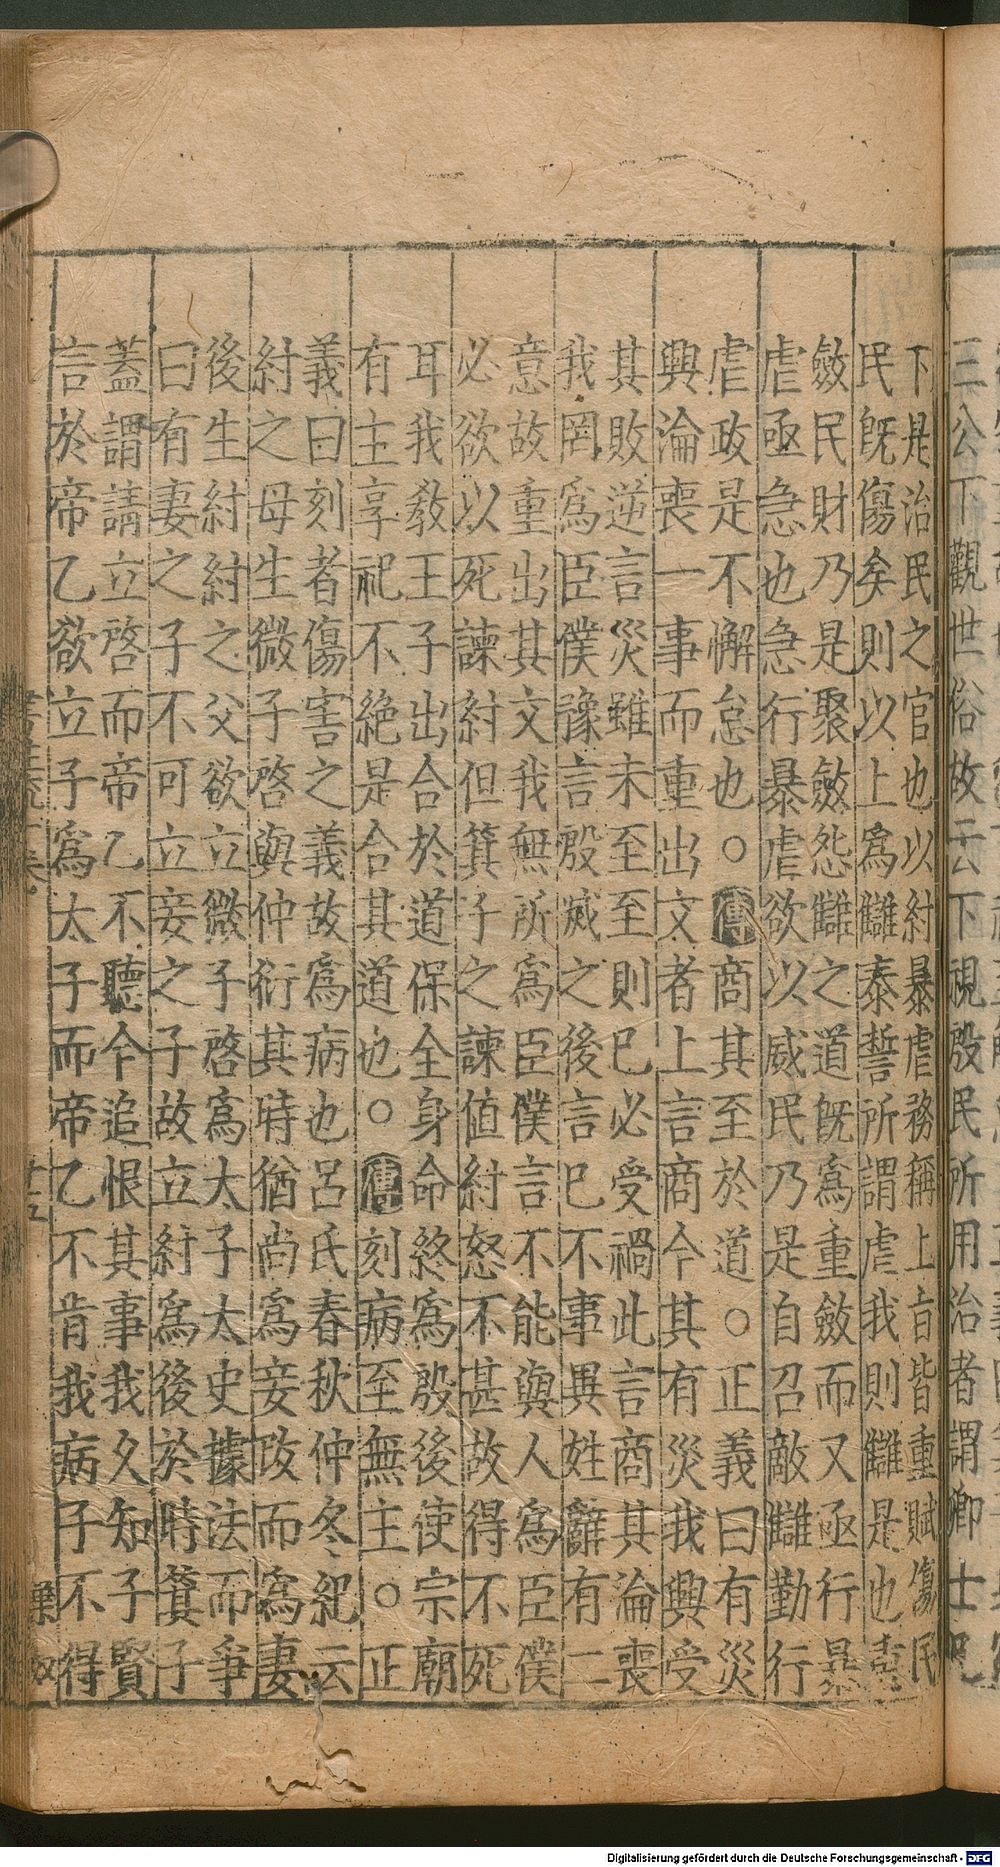 三公下觀世俗故云下視殷民所用治者謂卿士已
下是治民之官也以紂暴虐務稱上旨皆重賦傷民
民既傷矣則以上爲讎泰誓所謂虐我則讎是也
斂民財乃是聚斂怨讎之道既爲重斂而又亟行暴
虐亟急也急行暴虐欲以威民乃是自召敵讎勤行
虐政是不懈怠也○傳商其至於道○正義曰有災
興淪喪一事而重出文者上言商今其有災我興受
其敗逆言災雖未至至則已必受禍此言商其淪喪
我罔爲臣僕豫言殷滅之後言已不事異姓辭有二
意故重出其文我無所爲臣僕言不能與人爲臣僕
必欲以死諫紂但箕子之諫值紂怒不甚故得不死
耳我教王子出合於道保全身命終爲殷後使宗廟
有主享祀不絶是合其道也○傳刻病至無主○正
義曰刻者傷害之義故爲病也呂氏春秋仲冬紀云
紂之母生微子啓與仲衍其時猶尚爲妾改而爲妻
後生紂紂之父欲立微子啓爲太子太史據法而爭
曰有妻之子不可立妾之子故立紂爲後於時箕子
蓋謂請立啓而帝乙不聽今追恨其事我久知子賢
言於帝乙欲立子爲太子而帝乙不肯我病子不得
Digitalisierung gefördert durch die Deutsche Forschungsgemeinschaft - DFG